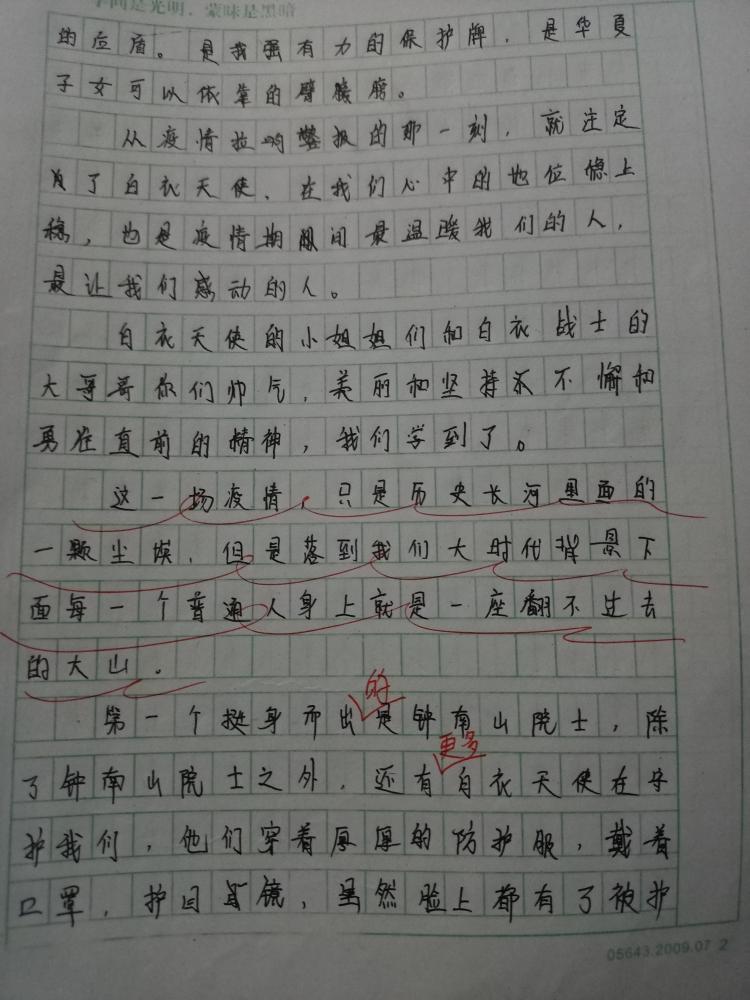 学问是光明，蒙昧是黑暗
的应盾。是我强有力的保护牌，是华夏
子女可以依靠的臂膀。
从疫情拉响警报的那一刻，就注定
为了白衣天使，在我们心中的地位稳上
稳，也是疫情期间最温暖我们的人，
最让我们感动的人。
白衣天使的小姐姐们和白衣战士的
大哥哥你们帅气，美丽和坚持不懈和
勇往直前的精神，我们学到了。
这一场疫情，只是历史长河里面的
一颗尘埃，但是落到我们大时代背景下
面每一个普通人身上就是一座翻不过去
的大山。
的
第一个挺身而出是钟南山院士，除
更多
了钟南山院士之外，还有白衣天使在守
护我们，他们穿着厚厚的防护服，戴着
口罩，护目镜，虽然脸上都有了被护
05643.2009.07 2